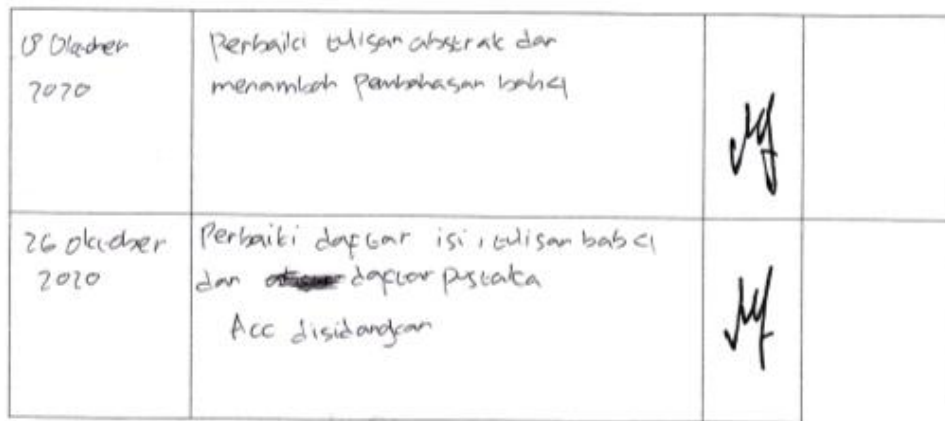 Oktober
2020
Perbaiki tulisan abstrak dan
menambah Pembahasan bab 4
26 Oktober
2020
Perbaiki daftar isi, tulisan bab 4
dan daftar pustaka
Acc disidangkan